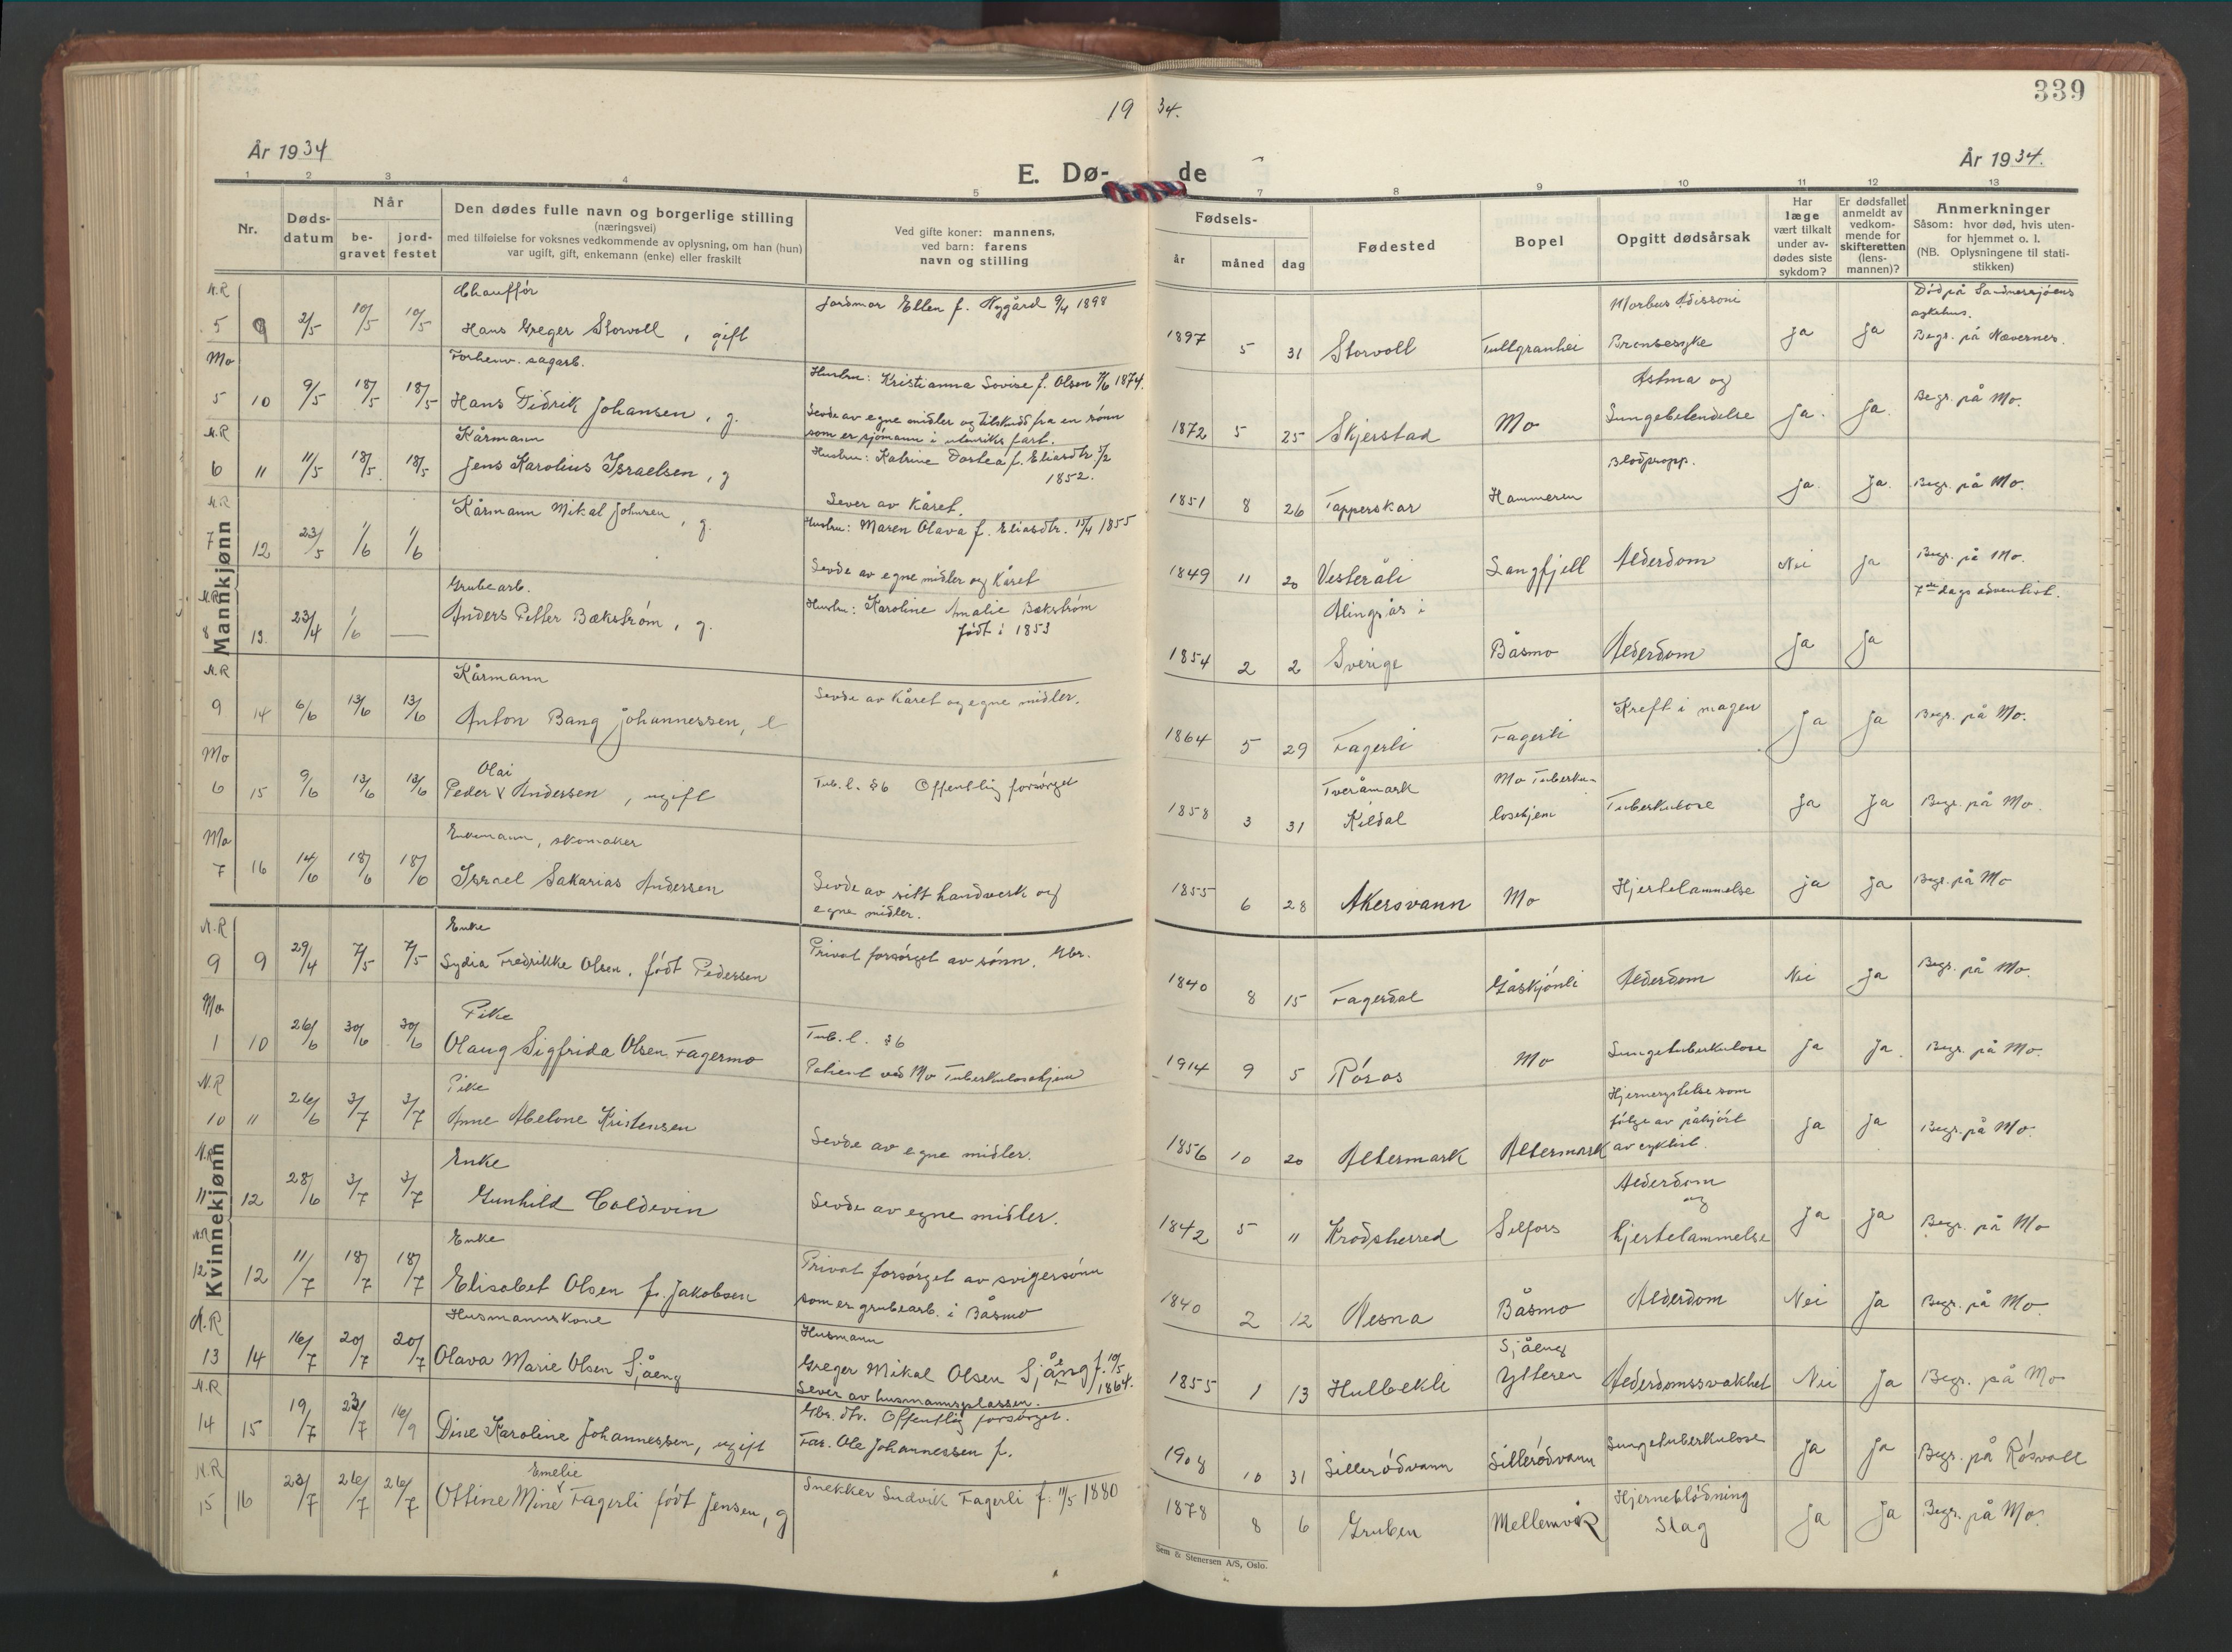 339
19 34.
År 1934
År 1934.
E. Dø- de
1 2 3 4 5 7 8 9 10 11 12 13
Nr.
Døds-
datum
Når
be-
gravet
jord-
festet
Den dødes fulle navn og borgerlige stilling
(næringsvei)
med tilføielse for voksnes vedkommende av oplysning, om han (hun)
var ugift, gift, enkemann (enke) eller fraskilt
Ved gifte koner: mannens,
ved barn: farens
navn og stilling
Fødsels-
år måned dag
Fødested
Bopel
Opgitt dødsårsak
Har
læge
vært tilkalt
under av-
dødes siste
sykdom?
Er dødsfallet
anmeldt av
vedkom-
mende for
skifteretten
(lens-
mannen)?
Anmerkninger
Såsom: hvor død, hvis uten-
for hjemmet o. l.
(NB. Oplysningene til stati-
stikken)
Mannkjønn
N.R Chauffør Jordmor Ellen f. Nygård 9/4 1898 Morbus Adissoni Død på Sandnessjøens
sykehus.
5 9 2/5 10/5 10/5 Hans Greger Storvoll, gift 1897 5 31 Storvoll Tullgranhei Bronsesyke Ja Ja Begr. på Nævernes.
Mo Forhenv. sagarb. Hustru: Kristianna Lovise f. Olsen 7/6 1874. Astma og
5 10 9/5 18/5 18/5 Hans Didrik Johansen, g. Levde av egne midler og tilskudd fra en sønn 1872 5 25 Skjerstad Mo Lungebetendelse Ja. Ja. Begr. på Mo.
som er sjømann i utenriks fart.
N.R Kårmann Hustru: Katrine Dortea f. Eliasdtr. 5/2 Blodpropp.
6 11 11/5 18/5 18/5 Jens Karolius Israelsen, g 1852. 1851 8 26 Tapperskar Hammeren Ja Ja. Begr. på Mo.
Lever av Kåret.
N.R Kårmann Mikal Johnsen, g. Hustru: Maren Olava f. Eliasdtr. 15/4 1855
7 12 23/5 1/6 1/6 Levde av egne midler og Kåret 1849 11 20 Vesteråli Langfjell Alderdom Nei Ja Begr. på Mo.
N.R Grubearb. Hustru: Karoline Amalie Bækstrøm Alingsås i 7de dags adventist.
8 13 23/4 1/6 — Anders Petter Bækstrøm, g. født i 1853 1854 2 2 Sverige Båsmo Alderdom Ja Ja
N.R Kårmann Levde av Kåret og egne midler.
9 14 6/6 13/6 13/6 Anton Bang Johannessen, e 1864 5 29 Fagerli Fagerli Kreft i magen Ja Ja Begr. på Mo.
Mo Olai Tveråmark Mo Tuberku-
6 15 9/6 13/6 13/6 Peder Andersen, ugift Tub. l. § 6 Offentlig forsørget 1858 3 31 Kildal losehjem Tuberkulose Ja Ja Begr. på Mo.
Mo Enkemann, skomaker
7 16 14/6 18/6 18/6 Israel Sakarias Andersen Levde av sitt handverk og 1855 6 28 Akersvann Mo Hjertelammelse ja Ja Begr. på Mo
egne midler.
Kvinnekjønn
N.R Enke
9 9 29/4 7/5 7/5 Lydia Fredrikke Olsen, født Pedersen Privat forsørget av sønn. Gbr. 1840 8 15 Fagerdal Gåskjønli Alderdom Nei Ja Begr. på Mo.
Mo Pike Tub. l. § 6
1 10 26/6 30/6 30/6 Olaug Sigfrida Olsen Fagermo Patient ved Mo Tuberkulosehjem 1914 9 5 Røros Mo Lungetuberkulose Ja Ja. Begr. på Mo.
N.R Pike Hjernerystelse som
10 11 26/6 3/7 3/7 Anne Abelone Kristensen Levde av egne midler. 1856 10 20 Altermark Altermark følge av påkjørt Ja Ja Begr. på Mo.
av cyklist.
N.R Enke Alderdom
11 12 28/6 3/7 3/7 Gunhild Coldevin Levde av egne midler. 1842 5 11 Krødsherred Selfors og Ja Ja Begr. på Mo
hjertelammelse
N.R Enke
12 12 11/7 18/7 18/7 Elisabet Olsen f. Jakobsen Privat forsørget av svigersønn 1840 2 12 Nesna Båsmo Alderdom Nei Ja Begr. på Mo.
som er grubearb. i Båsmo
N.R Husmannskone Husmann Sjåeng
13 14 16/7 20/7 20/7 Olava Marie Olsen Sjåeng Greger Mikal Olsen Sjåeng f. 10/5 1864. 1855 1 13 Hulbekli Ytteren Alderdomssvakhet Nei Ja Begr. på Mo
Lever av husmannsplassen.
N.R Gbr. dtr. Offentlig forsørget.
14 15 19/7 23/7 16/9 Dine Karoline Johannessen, ugift Far. Ole Johannessen f. 1908 10 31 Sillerødvann Sillerødvann Lungetuberkulose Ja Ja Begr. på Røsvoll
N.R Emelie Hjerneblødning
15 16 23/7 26/7 26/7 Ottine Mine Fagerli født Jensen, g Snekker Ludvik Fagerli f. 11/5 1880 1878 8 6 Gruben Mellemvik Slag Ja Ja Begr. på Mo.
Sem & Stenersen A/S, Oslo.